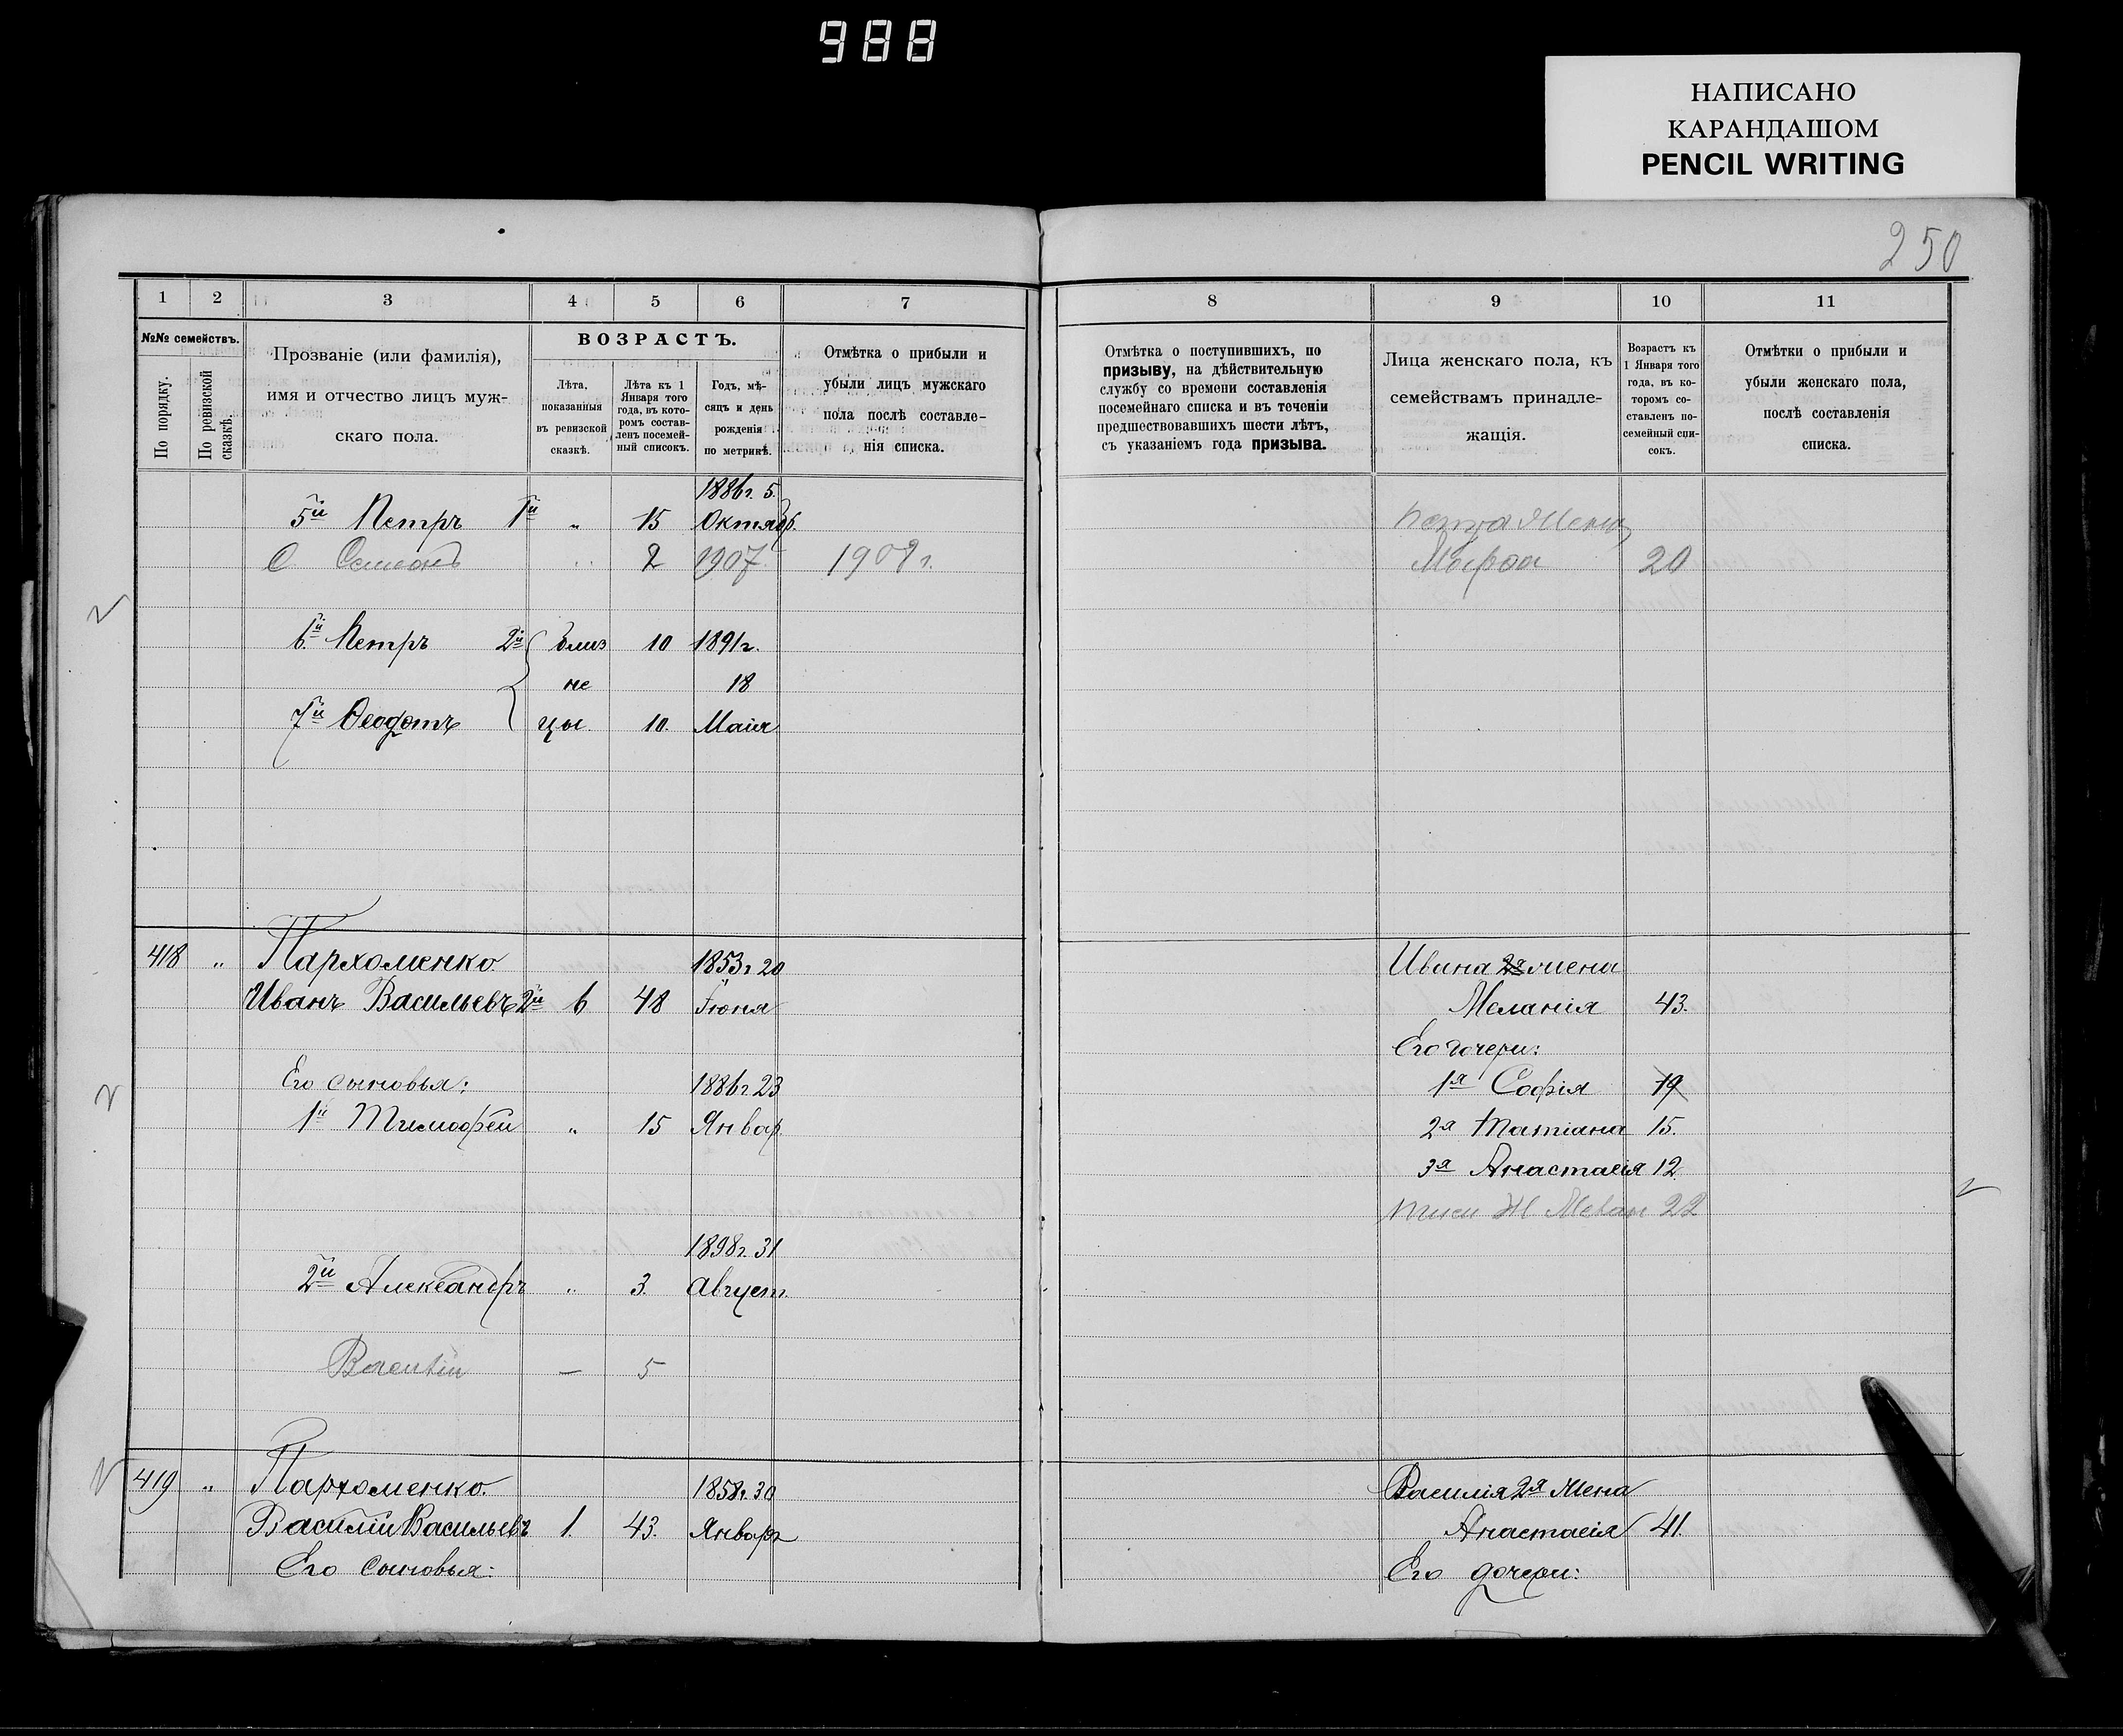 988
НАПИСАНО
КАРАНДАШОМ
PENCIL WRITING
250
1 2 3 4 5 6 7 8 9 10 11
№№ семействъ.
По порядку.
По ревизской сказкѣ.
Прозваніе (или фамилія),
имя и отчество лицъ муж-
скаго пола.
ВОЗРАСТЪ.
Лѣта,
показанныя
въ ревизской
сказкѣ.
Лѣта къ 1
Января того
года, въ кото-
ромъ состав-
ленъ посемей-
ный списокъ.
Годъ, мѣ-
сяцъ и день
рожденія
по метрикѣ.
Отмѣтка о прибыли и
убыли лицъ мужскаго
пола послѣ составле-
нія списка.
Отмѣтка о поступившихъ, по
призыву, на дѣйствительную
службу со времени составленія
посемейнаго списка и въ теченіи
предшествовавшихъ шести лѣтъ,
съ указаніемъ года призыва.
Лица женскаго пола, къ
семействамъ принадле-
жащія.
Возрастъ къ
1 Января того
года, въ ко-
торомъ со-
ставленъ по-
семейный спи-
сокъ.
Отмѣтки о прибыли и
убыли женскаго пола,
послѣ составленія
списка.
1886 г. 5.
5й Петръ 1й " 15 Октябр.
С. Семенъ " 2 1907 1908 г. 20
6й Петръ 2й близ 10 1891 г.
не 18
7й Ѳеодотъ цы. 10. Маія
418 " Пархоменко. 1853 г 20 Ивана 2й жена
Иванъ Васильевъ 2й 6 48 Іюня Меланія 43.
Его дочери:
Его сыновья: 1886 г. 23 1я Софія 19
1й Тимофей " 15 Январ. 2я Татіана 15.
3я Анастасія 12.
22
1898 г. 31
2й Александръ " 3. Август.
— 5
419 " Пархоменко. 1858 г. 30 Василія 2я жена
Василій Васильевъ 1. 43. Январь Анастасія 41.
Его сыновья: Его дочери: